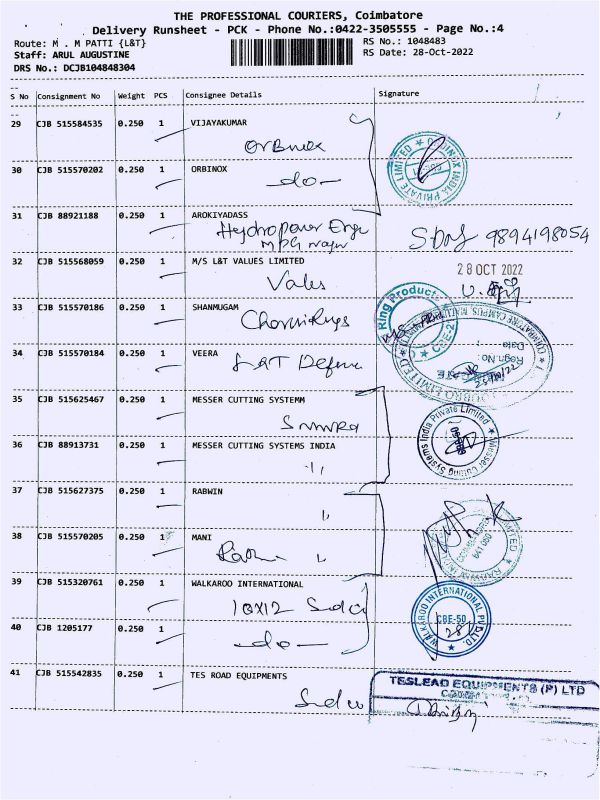 THE PROFESSIONAL COURIERS, Coimbatore
Delivery Runsheet - PCK - Phone No.:0422-3505555 - Page No.:4
Route: M . M PATTI {L&T}
RS No.: 1048483
Staff: ARUL AUGUSTINE
RS Date: 28-Oct-2022
DRS No.: DCJB104848304
S No Consignment No Weight PCS Consignee Details Signature
29 CJB 515584535 0.250 1 VIJAYAKUMAR
ORBINOX
30 CJB 515570202 0.250 1 ORBINOX
-do-
ORBINOX INDIA PRIVATE LIMITED
31 CJB 88921188 0.250 1 AROKIYADASS
Hydropower Engg
9894198054
32 CJB 515568059 0.250 1 M/S L&T VALUES LIMITED
Valves
28 OCT 2022
33 CJB 515570186 0.250 1 SHANMUGAM
Ring Products
CBE-2
34 CJB 515570184 0.250 1 VEERA
L&T Defence
Date :
Regn.No:
35 CJB 515625467 0.250 1 MESSER CUTTING SYSTEMM
36 CJB 88913731 0.250 1 MESSER CUTTING SYSTEMS INDIA
"
Messer Cutting Systems India Private Limited
37 CJB 515627375 0.250 1 RABWIN
"
38 CJB 515570205 0.250 1 MANI
"
641 050
39 CJB 515320761 0.250 1 WALKAROO INTERNATIONAL
10x12 Sidco
40 CJB 1205177 0.250 1
-do-
WALKAROO INTERNATIONAL PVT LTD.
CBE-50
28
41 CJB 515542835 0.250 1 TES ROAD EQUIPMENTS
Sidco
TESLEAD EQUIPMENTS (P) LTD